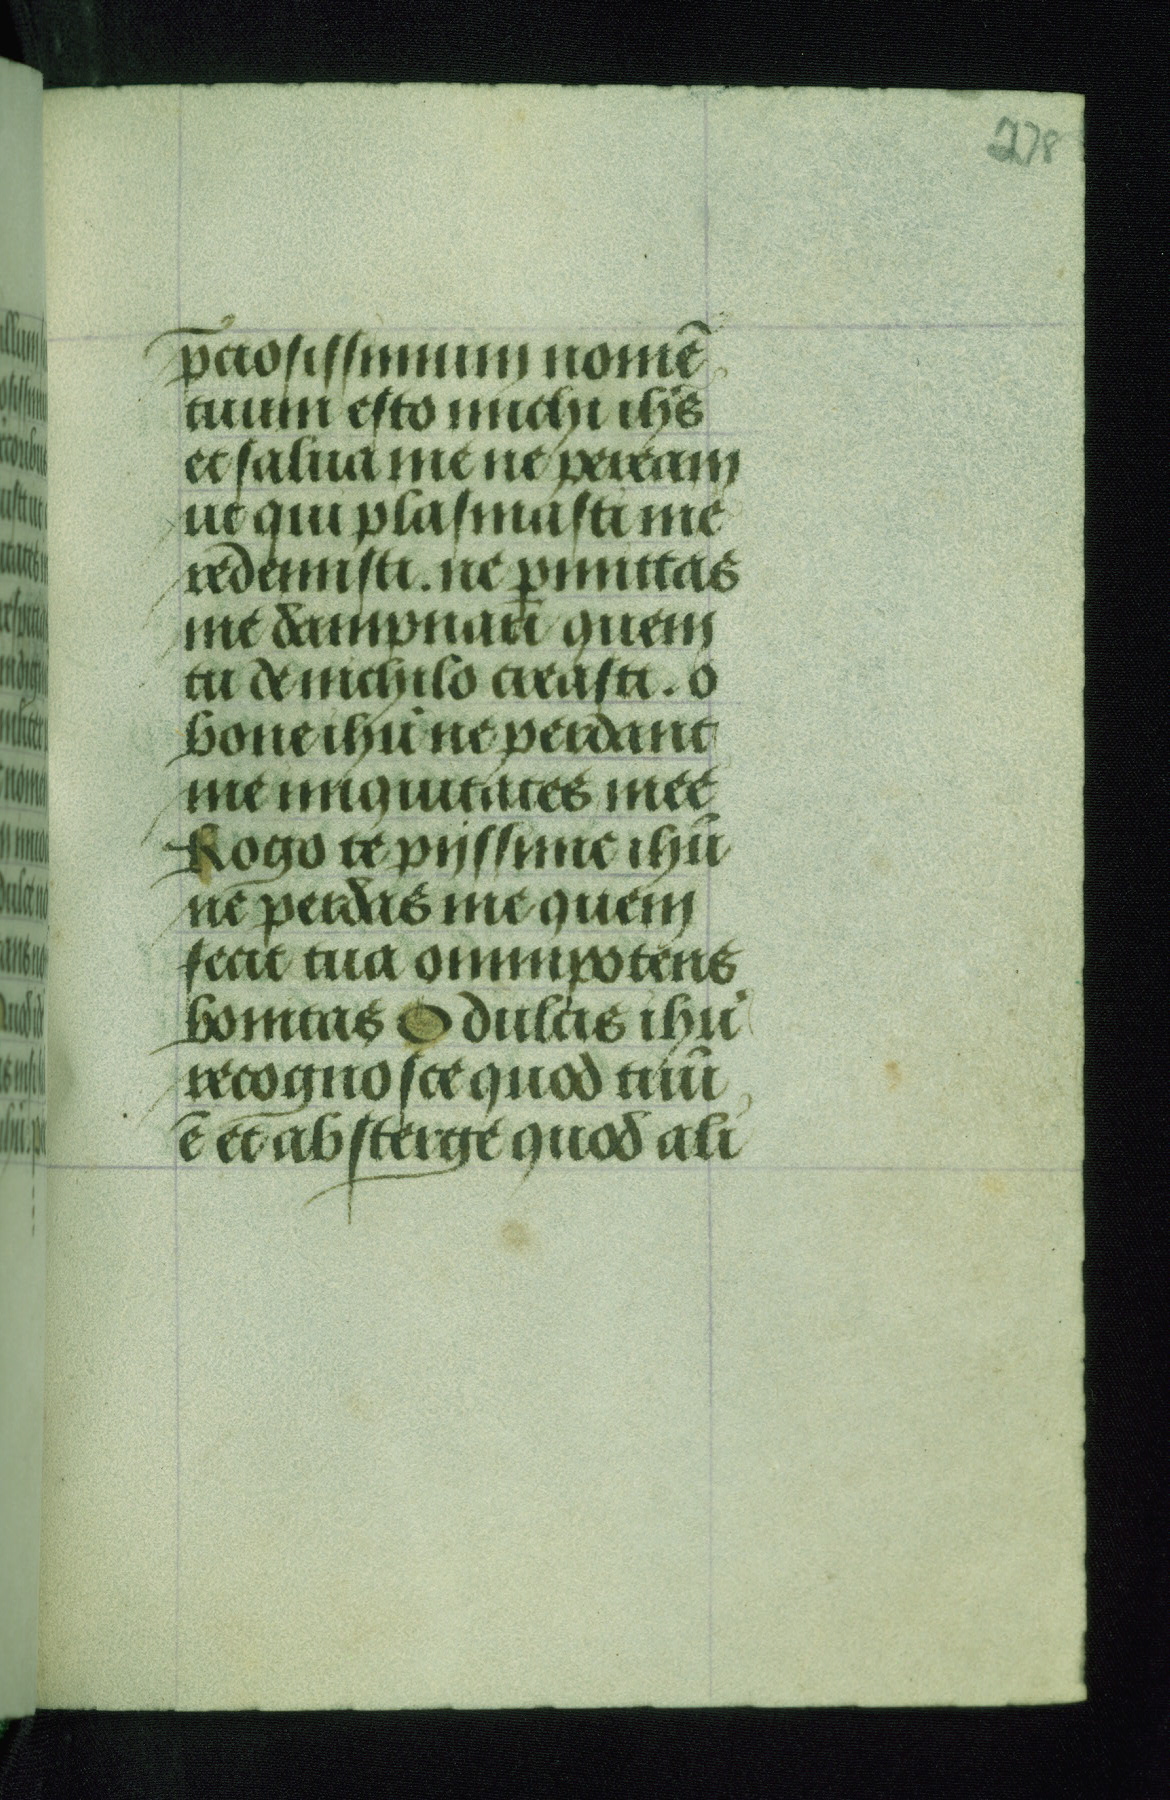 278
p̄ciosissimum nomē
tuum esto michi ihs̄
et salua me ne peream
ut qui plasmasti me
redemisti. ne ꝑmittas
me dampnari quem
tu de nichilo creasti. o
bone ihū ne perdant
me iniquitates mee
Rogo te pijssime ihū
ne perdas me quem
fecit tua omnipotens
bonitas O dulcis ihū
recognosce quod tuū
ē et absterge quod ali